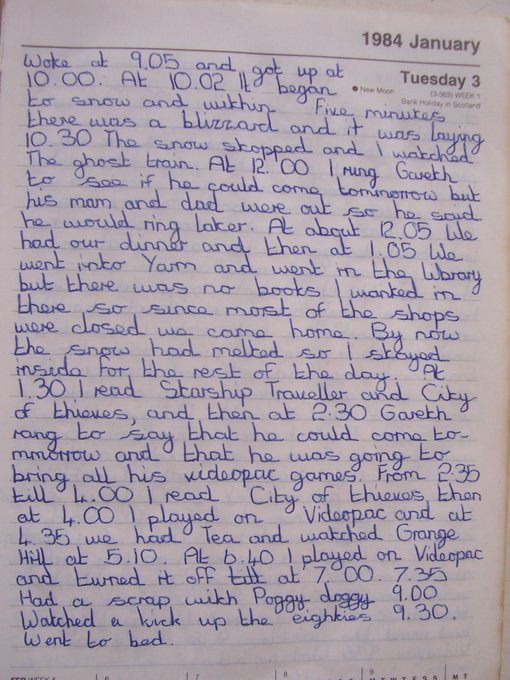 1984 January
Tuesday 3
● New Moon (3-363) WEEK 1
Bank Holiday in Scotland
Woke at 9.05 and got up at
10.00. At 10.02 It began
to snow and within five minutes
there was a blizzard and it was laying
10.30 The snow stopped and I watched
The ghost train. At 12.00 I rung Gareth
to see if he could come tommorrow but
his mam and dad were out so he said
he would ring later. At about 12.05 We
had our dinner and then at 1.05 We
went into Yarm and went in the library
but there was no books I wanted in
there so since most of the shops
were closed we came home. By now
the snow had melted so I stayed
inside for the rest of the day. At
1.30 I read Starship Traveller and City
of thieves, and then at 2.30 Gareth
rang to say that he could come to-
mmorrow and that he was going to
bring all his videopac games. From 2.35
till 4.00 I read City of thieves then
at 4.00 I played on Videopac and at
4.35 we had Tea and watched Grange
Hill at 5.10. At 6.40 I played on Videopac
and turned it off till at 7.00. 7.35
Had a scrap with Poggy doggy 9.00
Watched a kick up the eighties 9.30.
Went to bed.
6
7
8
9
M T W T F S S
M T